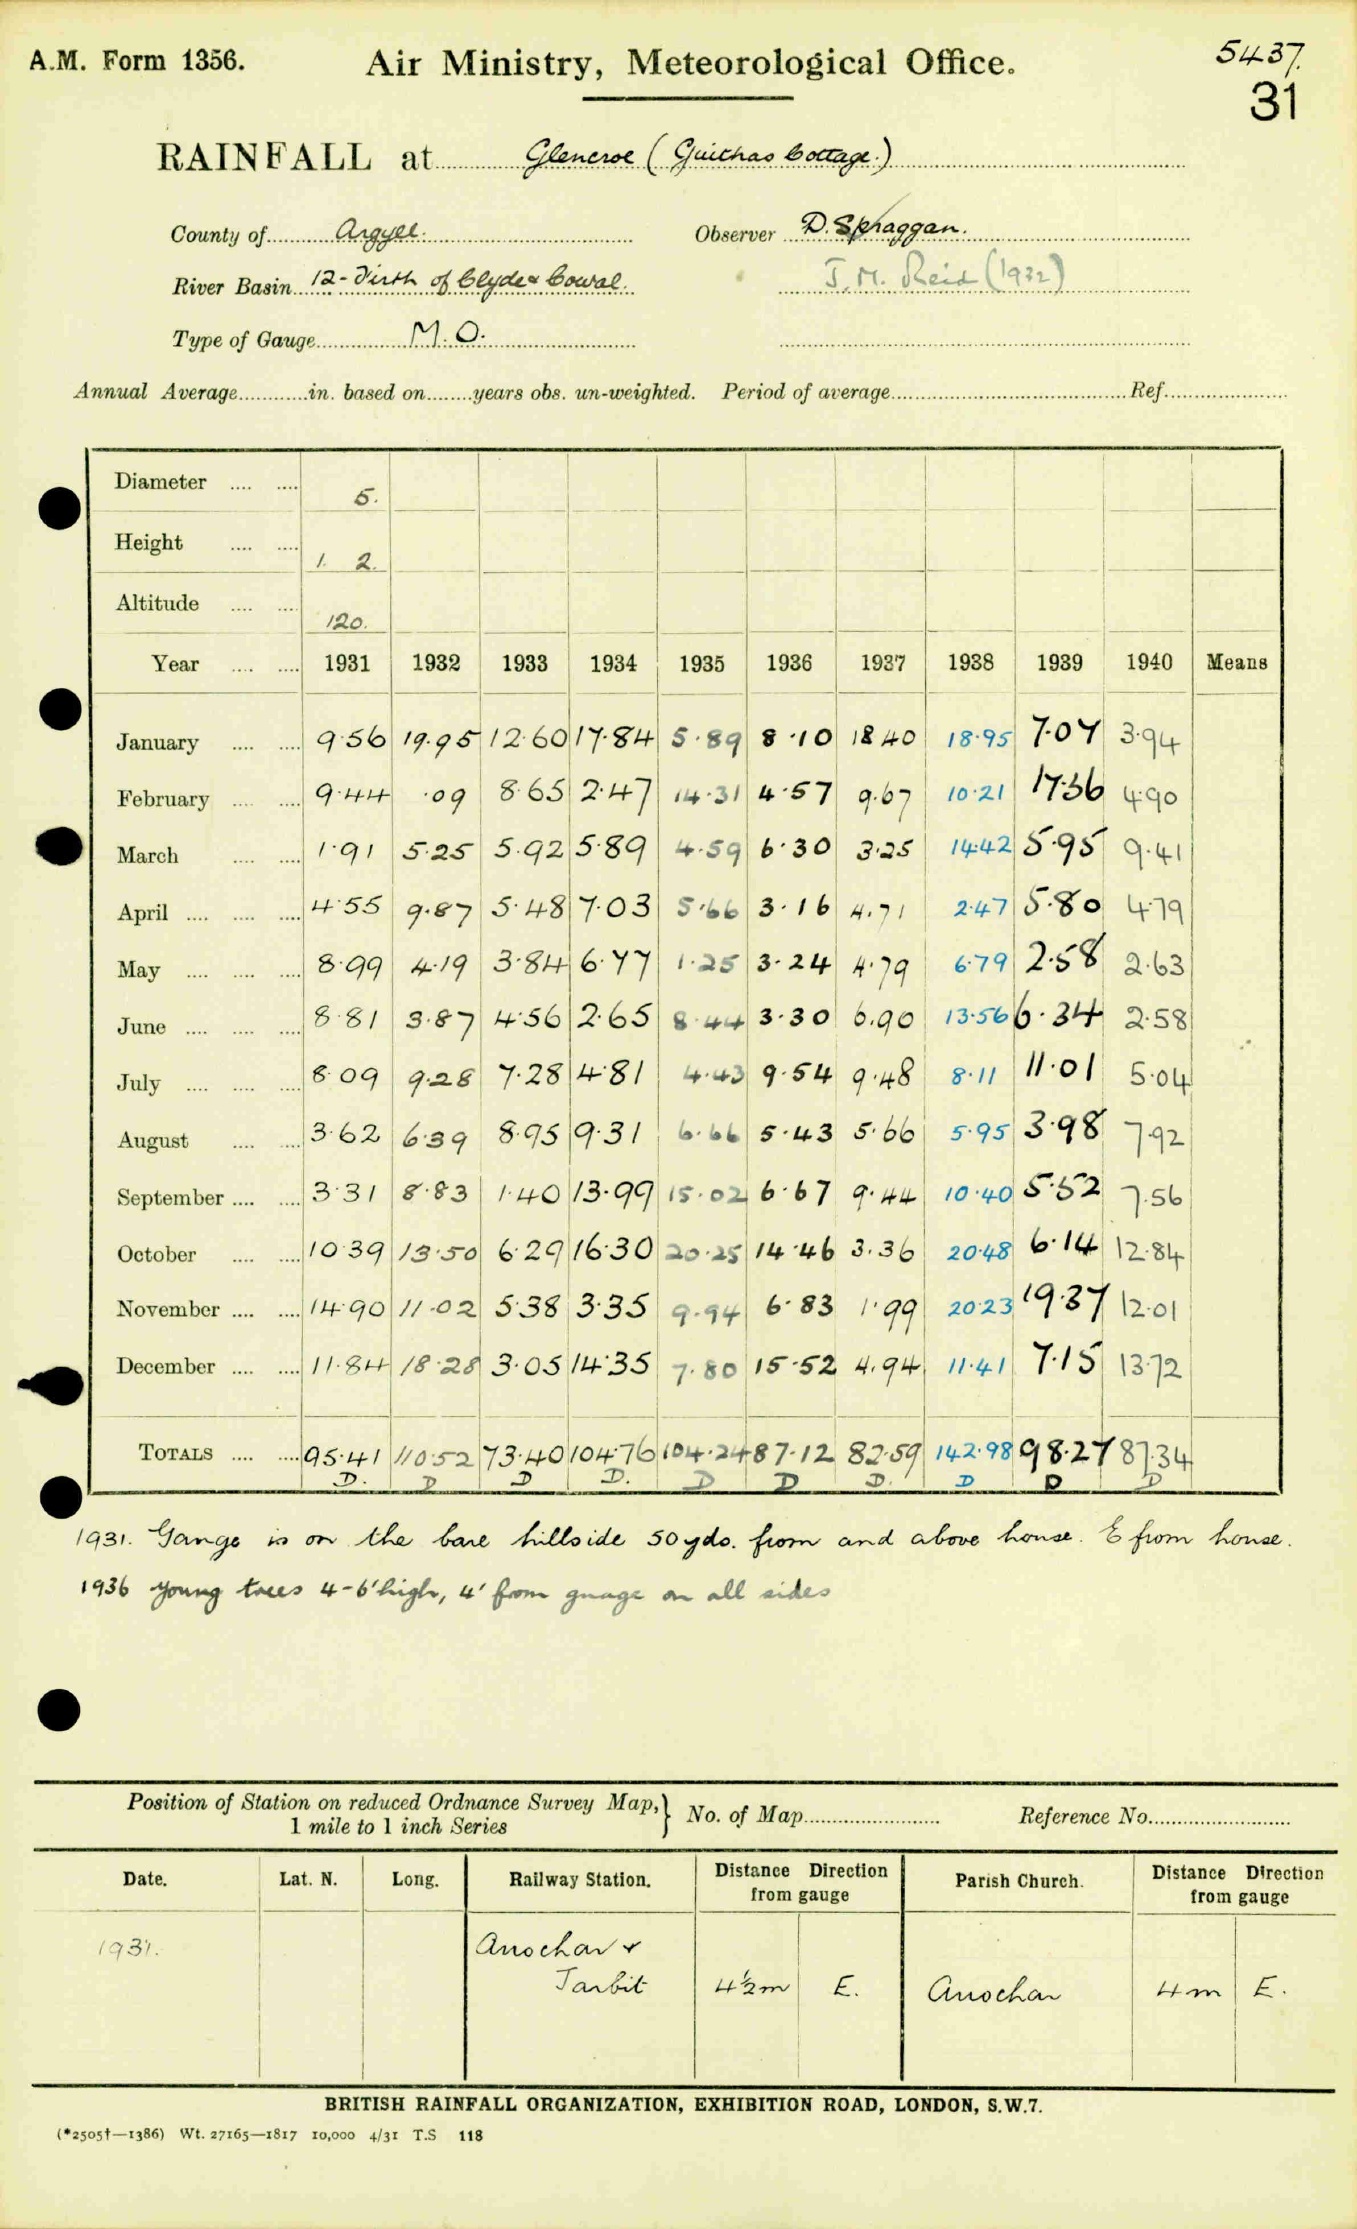 A.M. Form 1356.
Air Ministry, Meteorological Office.
5437.
31
RAINFALL at Glencroe (Guithas Cottage.)
County of Argyll. Observer D. Spraggan.
River Basin 12 - Firth of Clyde & Cowal. J. M. Reid (1932)
Type of Gauge M.O.
Annual Average in. based on years obs. un-weighted. Period of average Ref.
Diameter 5.
Height 1. 2.
Altitude 120.
Year 1931 1932 1933 1934 1935 1936 1937 1938 1939 1940 Means
January 9·56 19·95 12·60 17·84 5·89 8·10 18·40 18·95 7·07 3·94
February 9·44 ·09 8·65 2·47 14·31 4·57 9·67 10·21 17·36 4·90
March 1·91 5·25 5·92 5·89 4·59 6·30 3·25 14·42 5·95 9·41
April 4·55 9·87 5·48 7·03 5·66 3·16 4·71 2·47 5·80 4·79
May 8·99 4·19 3·84 6·77 1·25 3·24 4·79 6·79 2·58 2·63
June 8·81 3·87 4·56 2·65 8·44 3·30 6·90 13·56 6·34 2·58
July 8·09 9·28 7·28 4·81 4·43 9·54 9·48 8·11 11·01 5·04
August 3·62 6·39 8·95 9·31 6·66 5·43 5·66 5·95 3·98 7·92
September 3·31 8·83 1·40 13·99 15·02 6·67 9·44 10·40 5·52 7·56
October 10·39 13·50 6·29 16·30 20·25 14·46 3·36 20·48 6·14 12·84
November 14·90 11·02 5·38 3·35 9·94 6·83 1·99 20·23 19·37 12·01
December 11·84 18·28 3·05 14·35 7·80 15·52 4·94 11·41 7·15 13·72
TOTALS 95·41 110·52 73·40 104·76 104·24 87·12 82·59 142·98 98·27 87·34
D. D D D. D D D. D D D
1931. Gauge is on the bare hillside 50 yds. from and above house. E from house.
1936 young trees 4-6' high, 4' from guage on all sides
Position of Station on reduced Ordnance Survey Map,} No. of Map Reference No.
1 mile to 1 inch Series
Date. Lat. N. Long. Railway Station. Distance Direction from gauge Parish Church. Distance Direction from gauge
1931. Arrochar & Tarbit 4½m E. Arrochar 4m E.
BRITISH RAINFALL ORGANIZATION, EXHIBITION ROAD, LONDON, S.W.7.
(*2505†—1386) Wt. 27165—1817 10,000 4/31 T.S 118